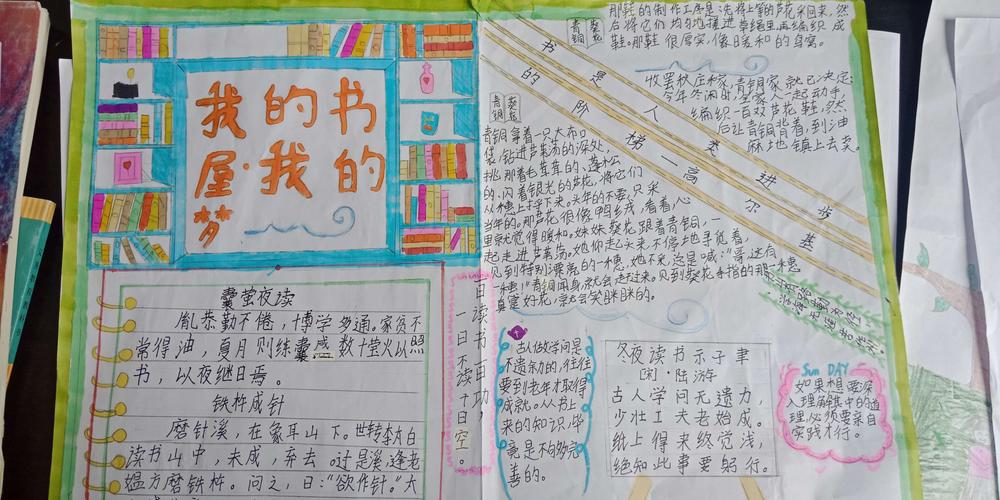 我的书
屋·我的
梦
囊萤夜读
胤恭勤不倦，博学多通。家贫不
常得油，夏月则练囊盛数十萤火以照
书，以夜继日焉。
铁杵成针
磨针溪，在象耳山下。世转李太白
读书山中，未成，弃去。过是溪，逢老
媪方磨铁杵。问之，曰："欲作针。"大
一日读书一日功，
一日不读十日空。
那鞋的制作工序是：先将上等的芦花采回来，然
后将它们均匀地搓进草绳里，再编织成
鞋。那鞋很厚实，像日暖和的鸟窝。
青铜
葵花
书是人类进步
的阶梯—高尔基
收罢秋庄和家，青铜家就已决定：
今年冬闲时，全家人一起动手，
编织一百双芦花鞋，然
后让青铜背着，到油
麻地镇上去卖。
青铜
葵花
青铜拿着一只大布口
袋，钻进芦荡的深处，
挑那着毛茸茸的、蓬松
的、闪着银光的芦花，将它们
从穗上捋下来。头年的不要，只采
当年的。那芦花很像鸭绒，看着，心
里就觉得暖和。妹妹葵花跟着青铜，一
起走进芦荡。她仰起头来，不停地寻觅着，
见到特别漂亮的一穗，她不采，总是喊："哥，这有
一穗！"青铜闻身，就会赶过来。见到葵花手指的那一穗
真是好花，就会笑眯眯的。
古人做学问是
不遗余力的，往往
要到老年才取得
成就。从书上
来的知识，毕
竟是不够完
善的。
冬夜读书示子聿
[宋]·陆游
古人学问无遗力，
少壮工夫老始成。
纸上得来终觉浅，
绝知此事要躬行。
Sun DAY
如果想要深
入理解其中的道
理必须要亲自
实践才行。